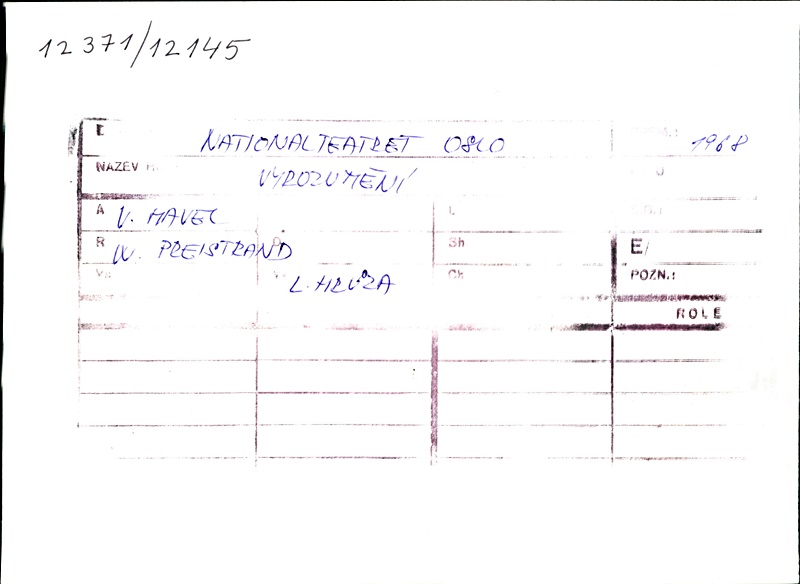 12 371/12145
NATIONALTEATRET OSLO 1968
NAZEV VYROZUMĚNÍ
A V. HAVEL
R W. PREISTRAND Sh E/
L. HRŮZA Ch POZN.:
ROLE